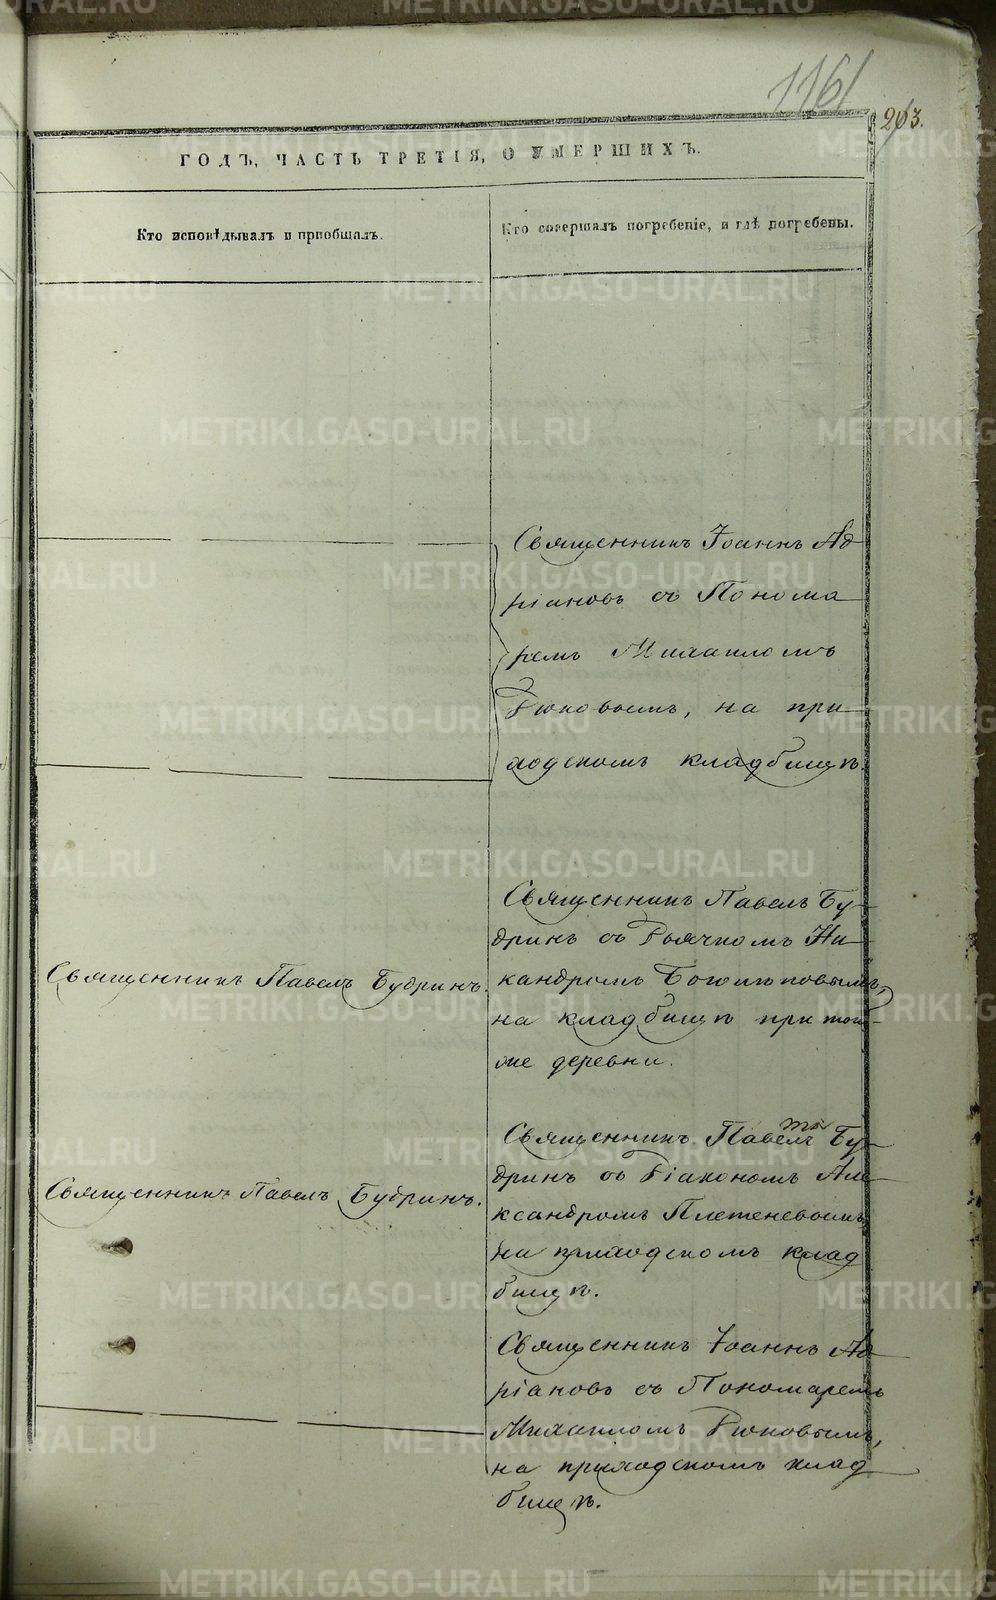 1161
263.
ГОДЪ, ЧАСТЬ ТРЕТІЯ, О УМЕРШИХЪ.
Кто исповѣдывалъ и пріобщалъ.
Кто совершалъ погребеніе, и гдѣ погребены.
Священникъ Іоаннъ Ад
ріановъ съ Понома
ремъ Михаиломъ
Дюковымъ, на при
ходскомъ кладбищѣ.
Священникъ Павелъ Будринъ.
Священникъ Павелъ Бу-
дринъ съ Дьячкомъ Ни
кандромъ Боголѣповымъ,
на кладбищѣ при той-
же деревни.
Священникъ Павелъ Будринъ.
Священникъ Павелъ Бу-
дринъ съ Діакономъ Але
ксандромъ Плетеневымъ,
на приходскомъ клад
бищѣ.
Священникъ Іоаннъ Ад
ріановъ съ Пономаремъ
Михаиломъ Дюковымъ,
на приходскомъ клад
бищѣ.
METRIKI.GASO-URAL.RU